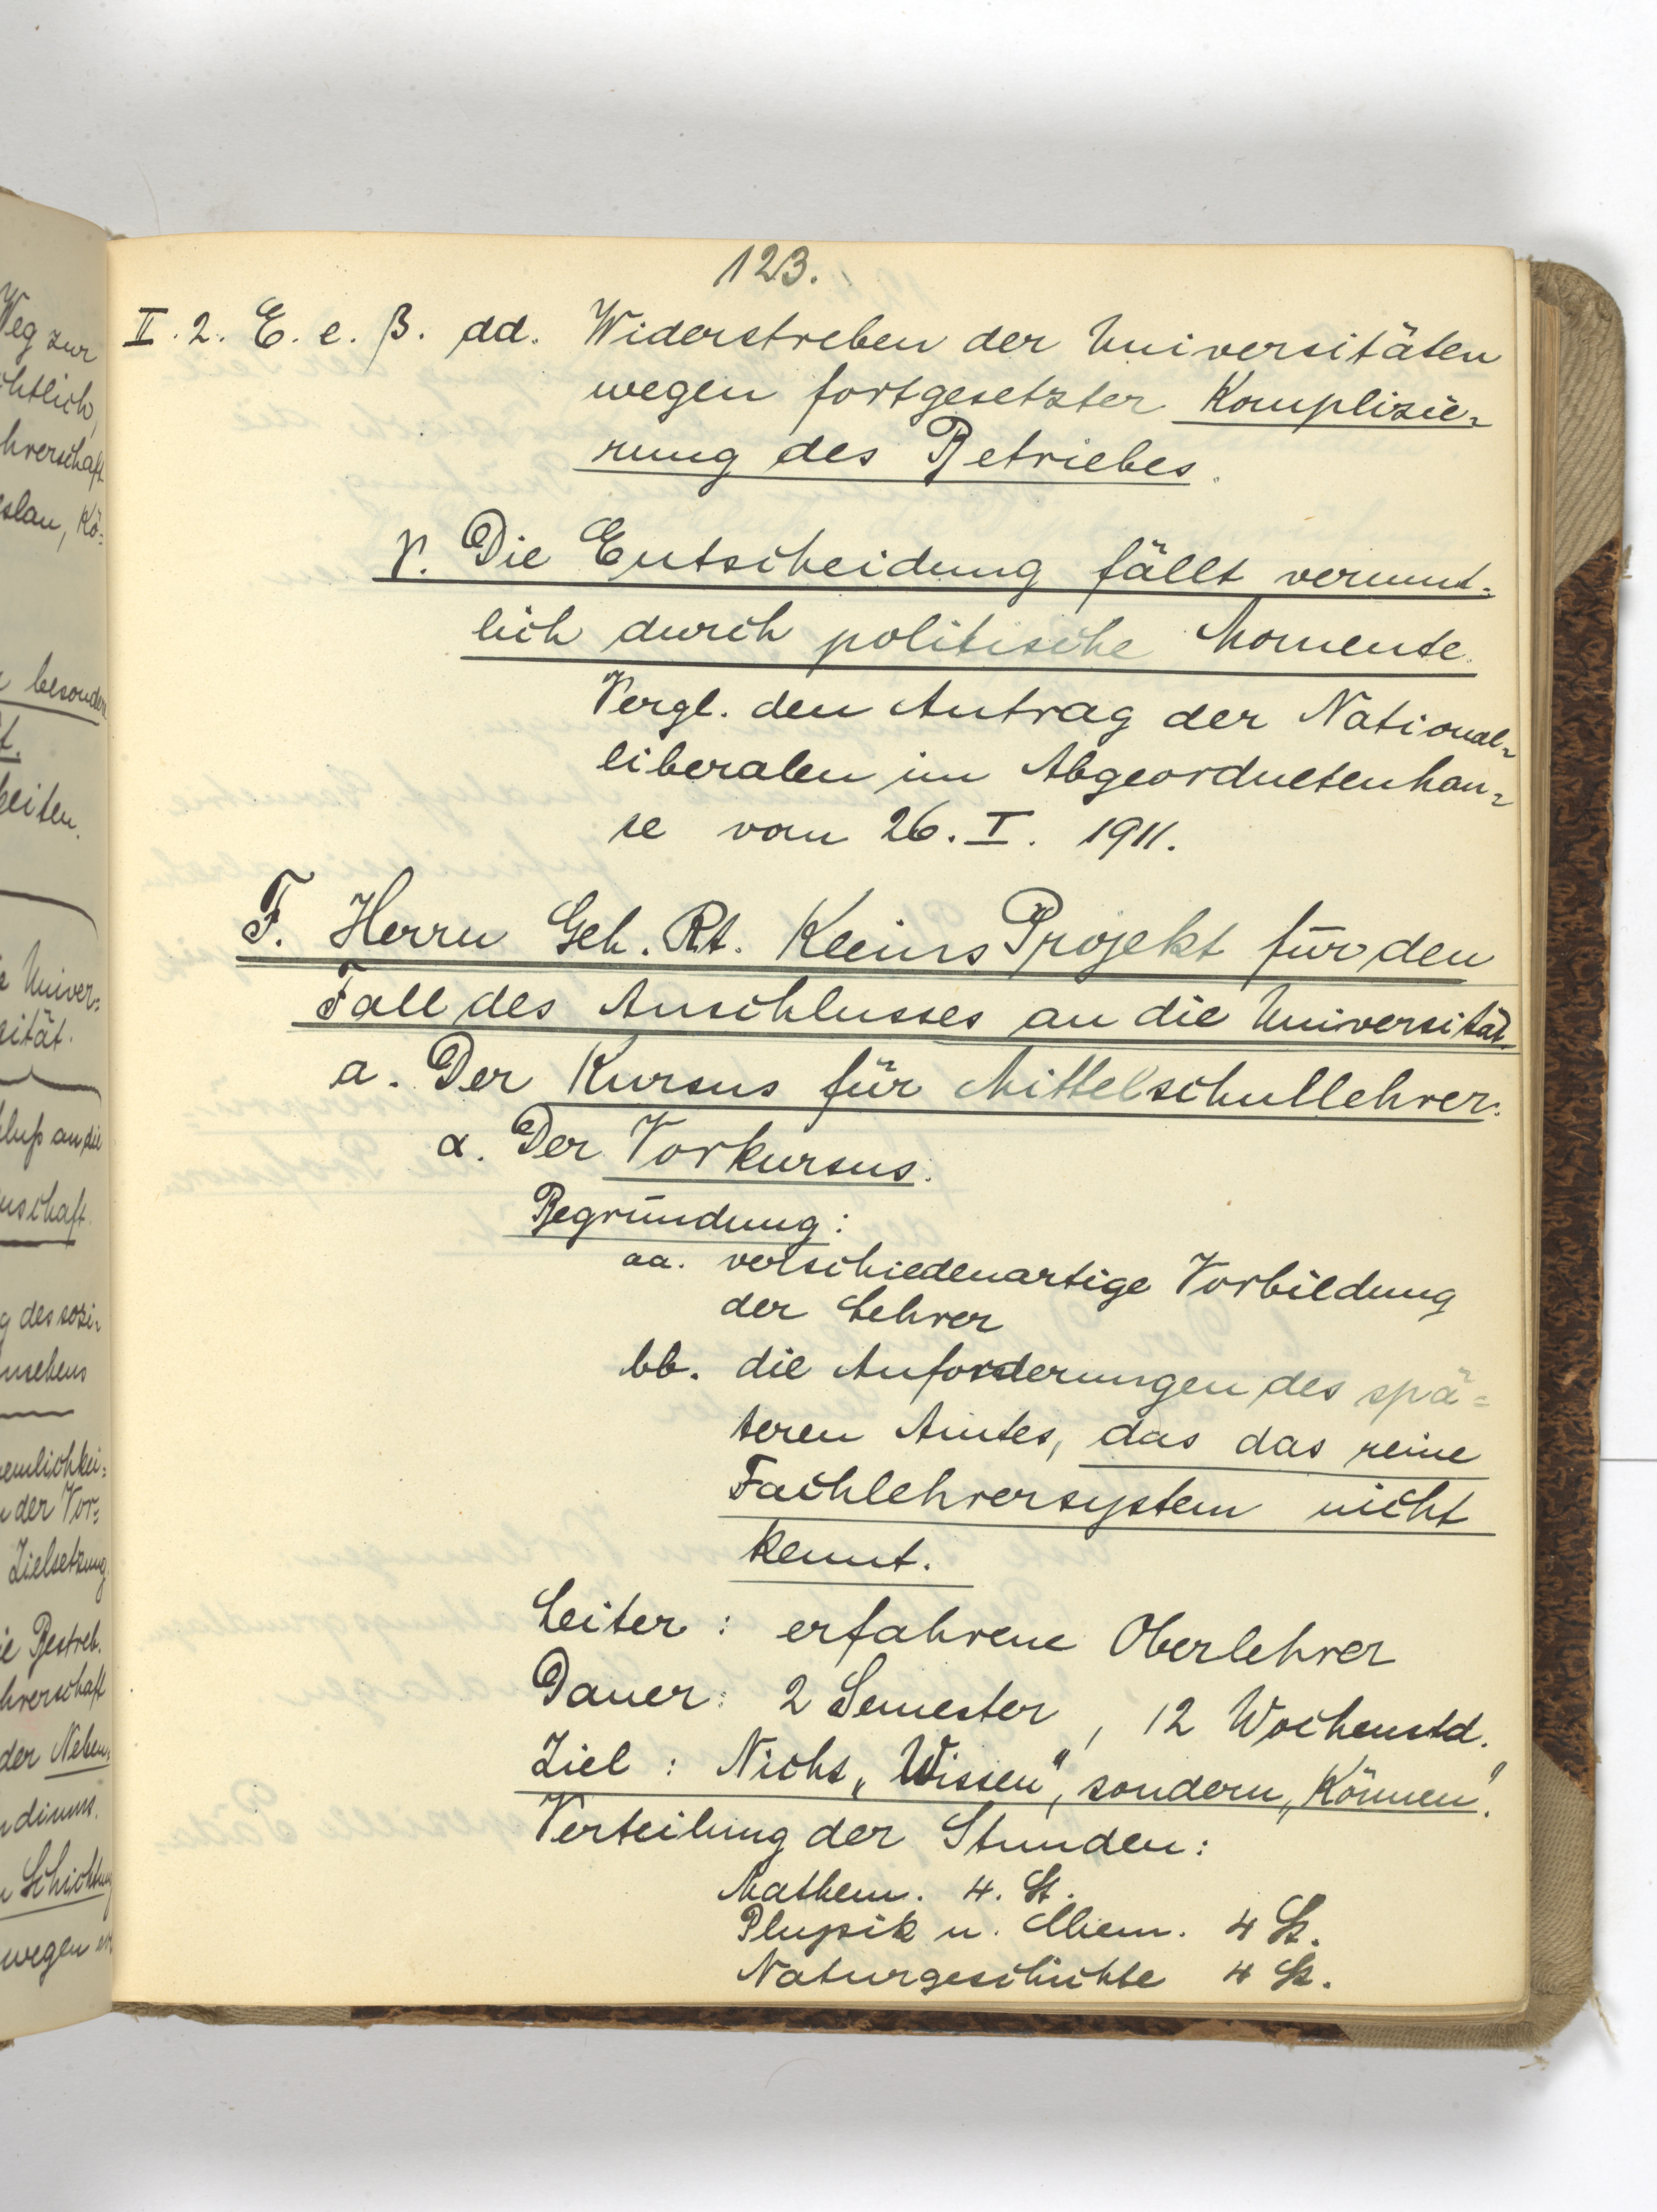 123.
II. 2. E. e. β. dd. Widerstreben der Universitäten
wegen fortgesetzter Komplizie-
rung des Betriebes.
γ. Die Entscheidung fällt vermut-
lich durch politische Momente.
Vergl. den Antrag der National-
liberalen im Abgeordnetenhau-
se vom 26. I. 1911.
F. Herrn Geh. Rt. Kleins Projekt für den
Fall des Anschlusses an die Universität.
a. Der Kursus für Mittelschullehrer.
α. Der Vorkursus.
Begründung:
aa. verschiedenartige Vorbildung
der Lehrer
bb. die Anforderungen des spä-
teren Amtes, das das reine
Fachlehrersystem nicht
kennt.
Leiter: erfahrene Oberlehrer
Dauer: 2 Semester, 12 Wochenstd.
Ziel: Nicht „Wissen“, sondern „Können“.
Verteilung der Stunden:
Mathem. 4. St.
Physik u. Chem. 4 St.
Naturgeschichte 4 St.
Weg zur
chtlich,
hrerschaft
eslau, Kö-
besondere
t.
keiten.
e Univer-
sität.
luß an die
nschaft.
g des sozi-
nsehens
emlichkei-
n der Vor-
Zielsetzung
ie Bestreb.
hrerschaft
der Neben-
diums.
Schichtung
wegen